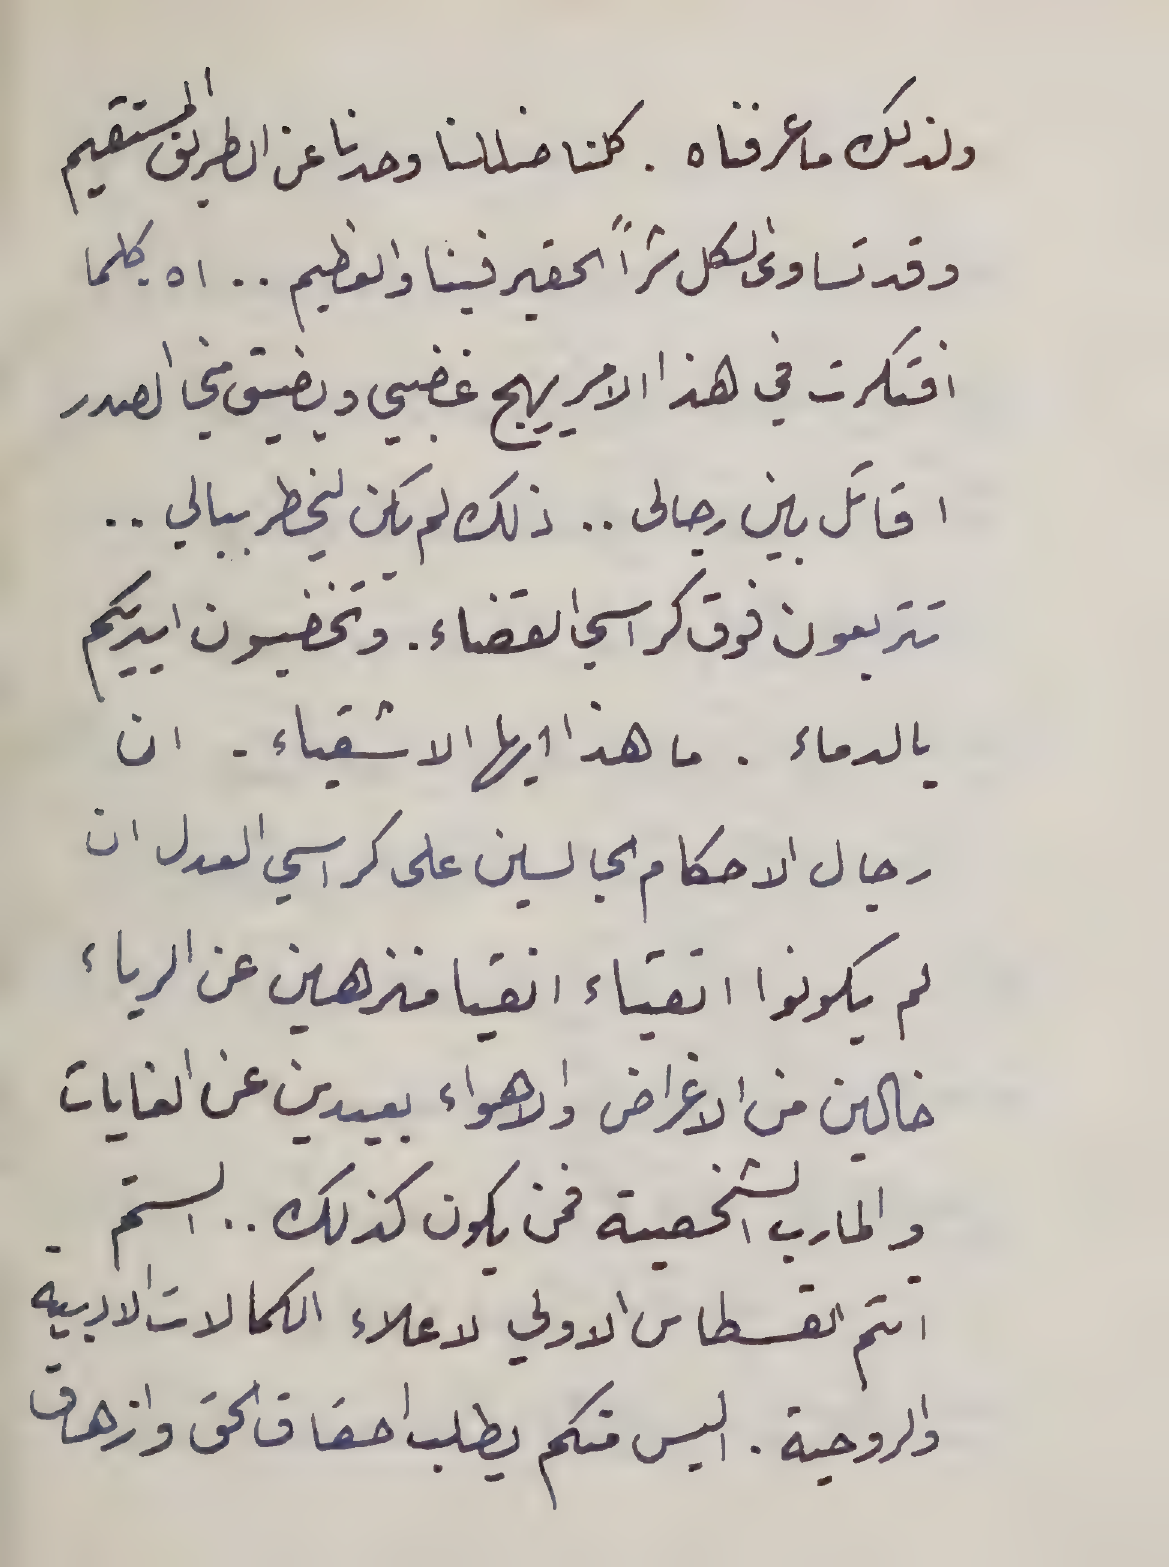 ولذلك ما عرفناه . كلنا ضللنا وحدنا عن الطريق المستقيم
وقد تساوى الكل شراً الحقير فينا والعظيم .. اه كلما
افتكرت في هذا الامر يهيج غضبي ويضيق مني الصدر
اقاتل بين رجالى .. ذلك لم يكن ليخطر ببالي ..
تتربعون فوق كراسي القضاء . وتخضبون ايديكم
بالدماء . ما هذا ايها الاشقياء . ان
رجال الاحكام الجالسين على كراسي العدل ان
لم يكونوا اتقياء انقيا منزهين عن الرياء
خالين من الاغراض والاهواء بعيدين عن الغايات
والمارب الشخصية فمن يكون كذلك .. الستم
انتم القسطاس الاولي لاعلاء الكمالات الادبية
والروحية . اليس منكم يطلب احقاق الحق وازهاق